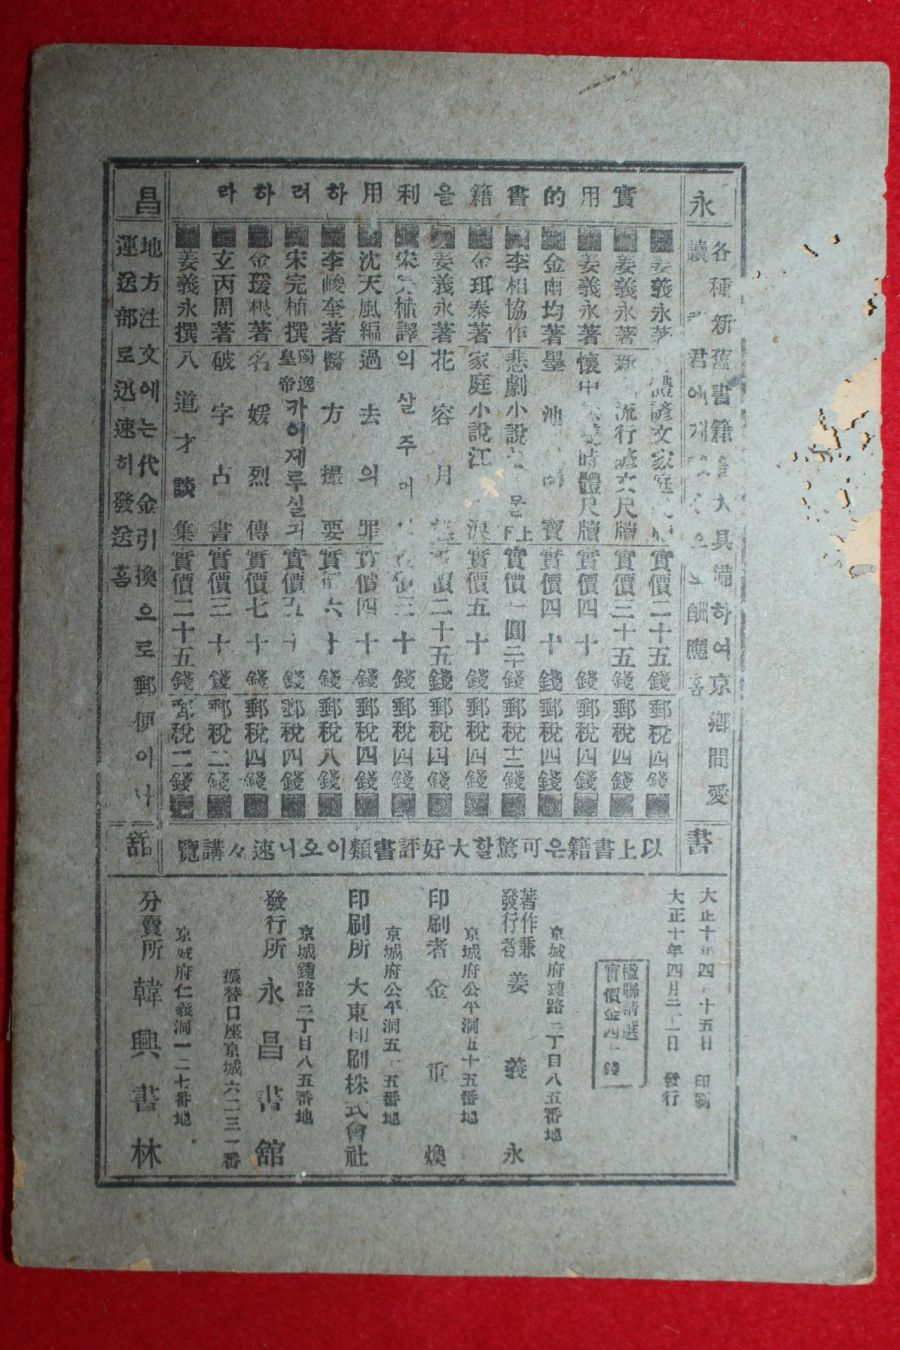 永昌書舘
各種新舊書籍 大具備하여京鄉間愛
讀 君에게 酬應홈
實用的書籍을利用하러하라
姜義永著 諺文家庭 實價二十五錢 郵稅四錢
姜義永著 新 流行諺文尺牘 實價三十五錢 郵稅四錢
姜義永著 懷中 時體尺牘 實價四十錢 郵稅四錢
金雨均著 墨池 寶 實價四十錢 郵稅四錢
李相協作 悲劇小說 눈물 上 實價一圓二十錢 郵稅十二錢
金珥泰著 家庭小說 江 浪 實價五十錢 郵稅四錢
姜義永著 花容月 實價二十五錢 郵稅四錢
宋完植譯 의살주머 實價三十錢 郵稅四錢
沈天風編 過去의罪 實價四十錢 郵稅四錢
李峻奎著 醫方撮要 實價六十錢 郵稅八錢
宋完植撰 獨逸皇帝 카이제루실긔 實價五十錢 郵稅四錢
金瑗根著 名媛烈傳 實價七十錢 郵稅四錢
玄丙周著 破字占書 實價三十錢 郵稅二錢
姜義永撰 八道才談集 實價二十五錢 郵稅二錢
地方注文에는代金引換으로郵便이나
運送部로迅速히發送홈
以上書籍은可驚할大好評書類이오니速々講覽
大正十年四月十五日 印刷
大正十年四月二十日 發行
楹聯精選
實價金四十錢
京城府鍾路二丁目八五番地
著作兼發行者 姜義永
京城府公平洞五十五番地
印刷者 金重煥
京城府公平洞五十五番地
印刷所 大東印刷株式會社
京城鍾路二丁目八五番地
發行所 永昌書舘
振替口座京城六二三一番
京城府仁義洞一二七番地
分賣所 韓興書林